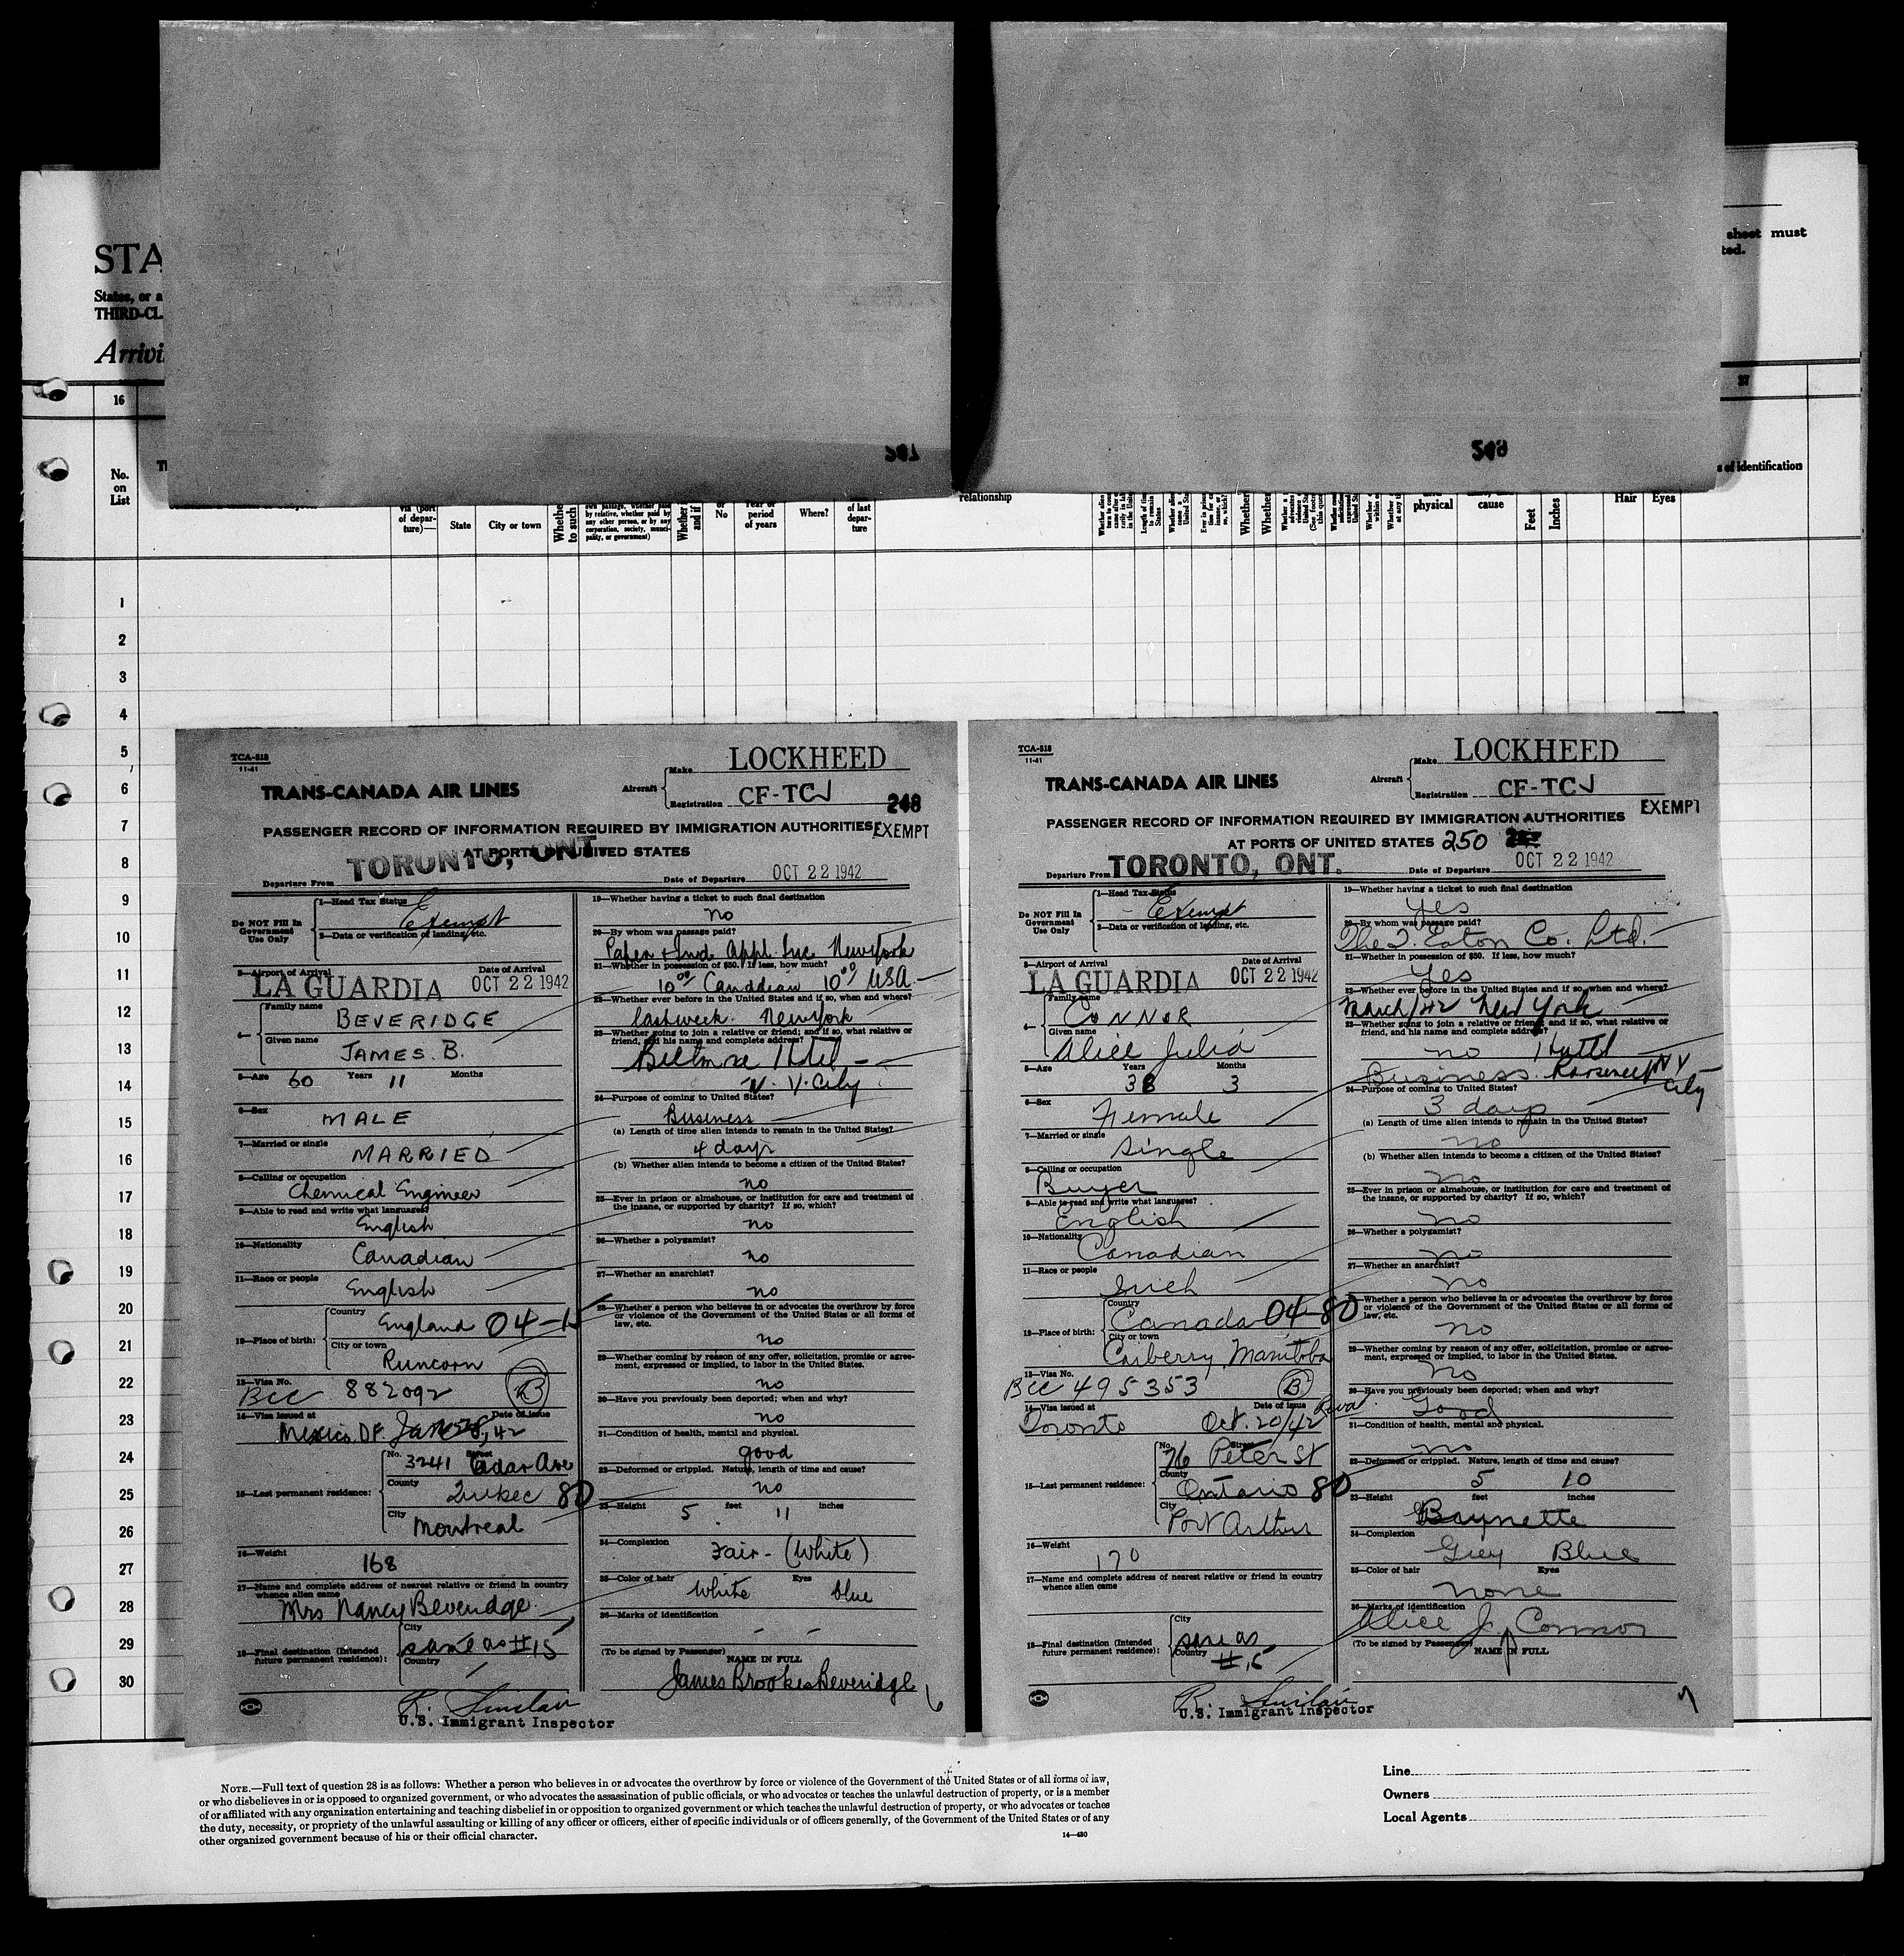 STA
States, or a
THIRD-CL
Arrivi
sheet must
ted.
16
27
No.
on
List
via (port
of depar-
ture)—
State
City or town
Whether
to such
own passage, whether paid
by relative, whether paid by
any other person, or by any
corporation, society, munici-
pality, or government)
Whether
and if
or
No
Year or
period
of years
Where?
of last
depar-
ture
relationship
physical
cause
Feet
Inches
s of identification
Hair
Eyes
1
2
3
4
5
6
7
8
9
10
11
12
13
14
15
16
17
18
19
20
21
22
23
24
25
26
27
28
29
30
TCA-518
11-41
TRANS-CANADA AIR LINES
Aircraft
Make LOCKHEED
Registration CF-TCJ
248
PASSENGER RECORD OF INFORMATION REQUIRED BY IMMIGRATION AUTHORITIES EXEMPT
AT PORTS OF UNITED STATES
Departure From TORONTO, ONT.
Date of Departure OCT 22 1942
Do NOT Fill In
Government
Use Only
1—Head Tax Status
Exempt
2—Data or verification of landing, etc.
3—Airport of Arrival
Date of Arrival
LA GUARDIA OCT 22 1942
4—
Family name
BEVERIDGE
Given name
JAMES. B.
5—Age 60 Years 11 Months
6—Sex
MALE
7—Married or single
MARRIED
8—Calling or occupation
Chemical Engineer
9—Able to read and write what languages?
English
10—Nationality
Canadian
11—Race or people
English
12—Place of birth:
Country
England 04-15
City or town
Runcorn
13—Visa No.
BCC 882092 B
14—Visa issued at
Date of issue
Mexico DF. Jan 28, 42
15—Last permanent residence:
No. 3241 Street Cedar Ave
County
Quebec 80
City
Montreal
16—Weight
168
17—Name and complete address of nearest relative or friend in country
whence alien came
Mrs Nancy Beveridge
18—Final destination (Intended
future permanent residence):
City
same as #15
Country
R. Sinclair
U.S. Immigrant Inspector
19—Whether having a ticket to such final destination
no
20—By whom was passage paid?
Paper & Ind. Appl. Inc. New York
21—Whether in possession of $50. If less, how much?
10⁰⁰ Canadian 10⁰⁰ USA
22—Whether ever before in the United States and if so, when and where?
last week. New York
23—Whether going to join a relative or friend; and if so, what relative or
friend, and his name and complete address?
Biltmore Hotel -
N. Y. City
24—Purpose of coming to United States?
Business
(a) Length of time alien intends to remain in the United States?
4 days
(b) Whether alien intends to become a citizen of the United States?
no
25—Ever in prison or almshouse, or institution for care and treatment of
the insane, or supported by charity? If so, which?
no
26—Whether a polygamist?
no
27—Whether an anarchist?
no
28—Whether a person who believes in or advocates the overthrow by force
or violence of the Government of the United States or all forms of
law, etc.
no
29—Whether coming by reason of any offer, solicitation, promise or agree-
ment, expressed or implied, to labor in the United States.
no
30—Have you previously been deported; when and why?
no
31—Condition of health, mental and physical.
good
32—Deformed or crippled. Nature, length of time and cause?
no
33—Height 5 feet 11 inches
34—Complexion
Fair - (White)
35—Color of hair
Eyes
White blue
36—Marks of identification
- -
(To be signed by Passenger)
NAME IN FULL
James Brookes Beveridge
6
TCA-518
11-41
TRANS-CANADA AIR LINES
Aircraft
Make LOCKHEED
Registration CF-TCJ
EXEMPT
PASSENGER RECORD OF INFORMATION REQUIRED BY IMMIGRATION AUTHORITIES
AT PORTS OF UNITED STATES 250
Departure From TORONTO, ONT.
Date of Departure OCT 22 1942
Do NOT Fill In
Government
Use Only
1—Head Tax Status
- Exempt
2—Data or verification of landing, etc.
3—Airport of Arrival
Date of Arrival
LA GUARDIA OCT 22 1942
4—
Family name
CONNOR
Given name
Alice Julia
5—Age
Years
Months
38 3
6—Sex
Female
7—Married or single
Single
8—Calling or occupation
Buyer
9—Able to read and write what languages?
English
10—Nationality
Canadian
11—Race or people
Irich
12—Place of birth:
Country
Canada 04-80
City or town
Carberry Manitoba
13—Visa No.
BCC 495353 B
14—Visa issued at
Date of issue
Toronto Oct. 20/42
15—Last permanent residence:
No. 76 Street Peter St
County
Ontario 80
City
Port Arthur
16—Weight
170
17—Name and complete address of nearest relative or friend in country
whence alien came
18—Final destination (Intended
future permanent residence):
City
same as
Country
#15
R. Sinclair
U.S. Immigrant Inspector
19—Whether having a ticket to such final destination
yes
20—By whom was passage paid?
The T. Eaton Co. Ltd.
21—Whether in possession of $50. If less, how much?
yes
22—Whether ever before in the United States and if so, when and where?
March/42 New York
23—Whether going to join a relative or friend; and if so, what relative or
friend, and his name and complete address?
no Hotel
Business. Roosevelt N Y
City
24—Purpose of coming to United States?
3 days
(a) Length of time alien intends to remain in the United States?
no
(b) Whether alien intends to become a citizen of the United States?
no
25—Ever in prison or almshouse, or institution for care and treatment of
the insane, or supported by charity? If so, which?
no
26—Whether a polygamist?
no
27—Whether an anarchist?
no
28—Whether a person who believes in or advocates the overthrow by force
or violence of the Government of the United States or all forms of
law, etc.
no
29—Whether coming by reason of any offer, solicitation, promise or agree-
ment, expressed or implied, to labor in the United States.
no
30—Have you previously been deported; when and why?
Good
31—Condition of health, mental and physical.
no
32—Deformed or crippled. Nature, length of time and cause?
5 10
33—Height feet inches
Brunette
34—Complexion
Grey Blue
35—Color of hair
Eyes
none
36—Marks of identification
Alice J. Connor
(To be signed by Passenger)
NAME IN FULL
7
NOTE.—Full text of question 28 is as follows: Whether a person who believes in or advocates the overthrow by force or violence of the Government of the United States or of all forms of law,
or who disbelieves in or is opposed to organized government, or who advocates the assassination of public officials, or who advocates or teaches the unlawful destruction of property, or is a member
of or affiliated with any organization entertaining and teaching disbelief in or opposition to organized government or which teaches the unlawful destruction of property, or who advocates or teaches
the duty, necessity, or propriety of the unlawful assaulting or killing of any officer or officers, either of specific individuals or of officers generally, of the Government of the United States or of any
other organized government because of his or their official character.
14—430
Line
Owners
Local Agents